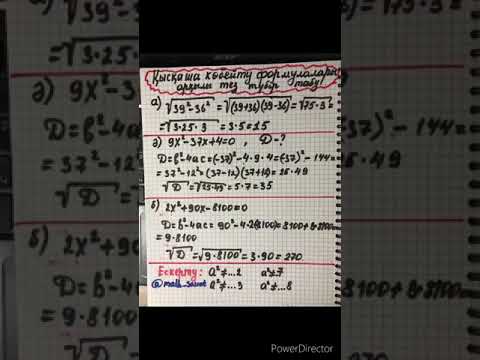 Қысқаша көбейту формулалары
арқылы тез түбір табу!
а) √39²-36² = √(39+36)(39-36) = √75·3 =
= √3·25·3 = 3·5=15
ә) 9x²-37x+4=0, D-?
D=b²-4ac=(-37)²-4·9·4=(-37)²-144=
=37²-12²=(37-12)(37+12)=25·49
√D = √25·49 = 5·7=35
б) 2x²+90x-8100=0
D=b²-4ac=90²-4·2(-8100)=8100+8·8100=
=9·8100
√D = √9·8100 = 3·90=270
Ескерту: a²≠...2 a²≠...7
@math_sauat a²≠...3 a²≠...8
PowerDirector